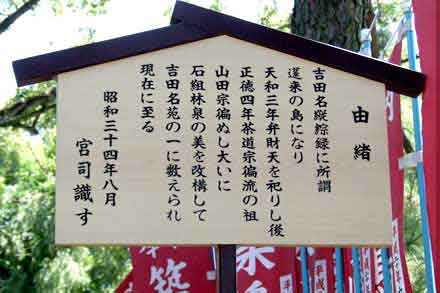 由緒
吉田名蹤綜録に所謂
蓬来の島になり
天和三年弁財天を祀りし後
正徳四年茶道宗徧流の祖
山田宗徧ぬし大いに
石組林泉の美を改構して
吉田名苑の一に数えられ
現在に至る
昭和三十四年八月
宮司識す